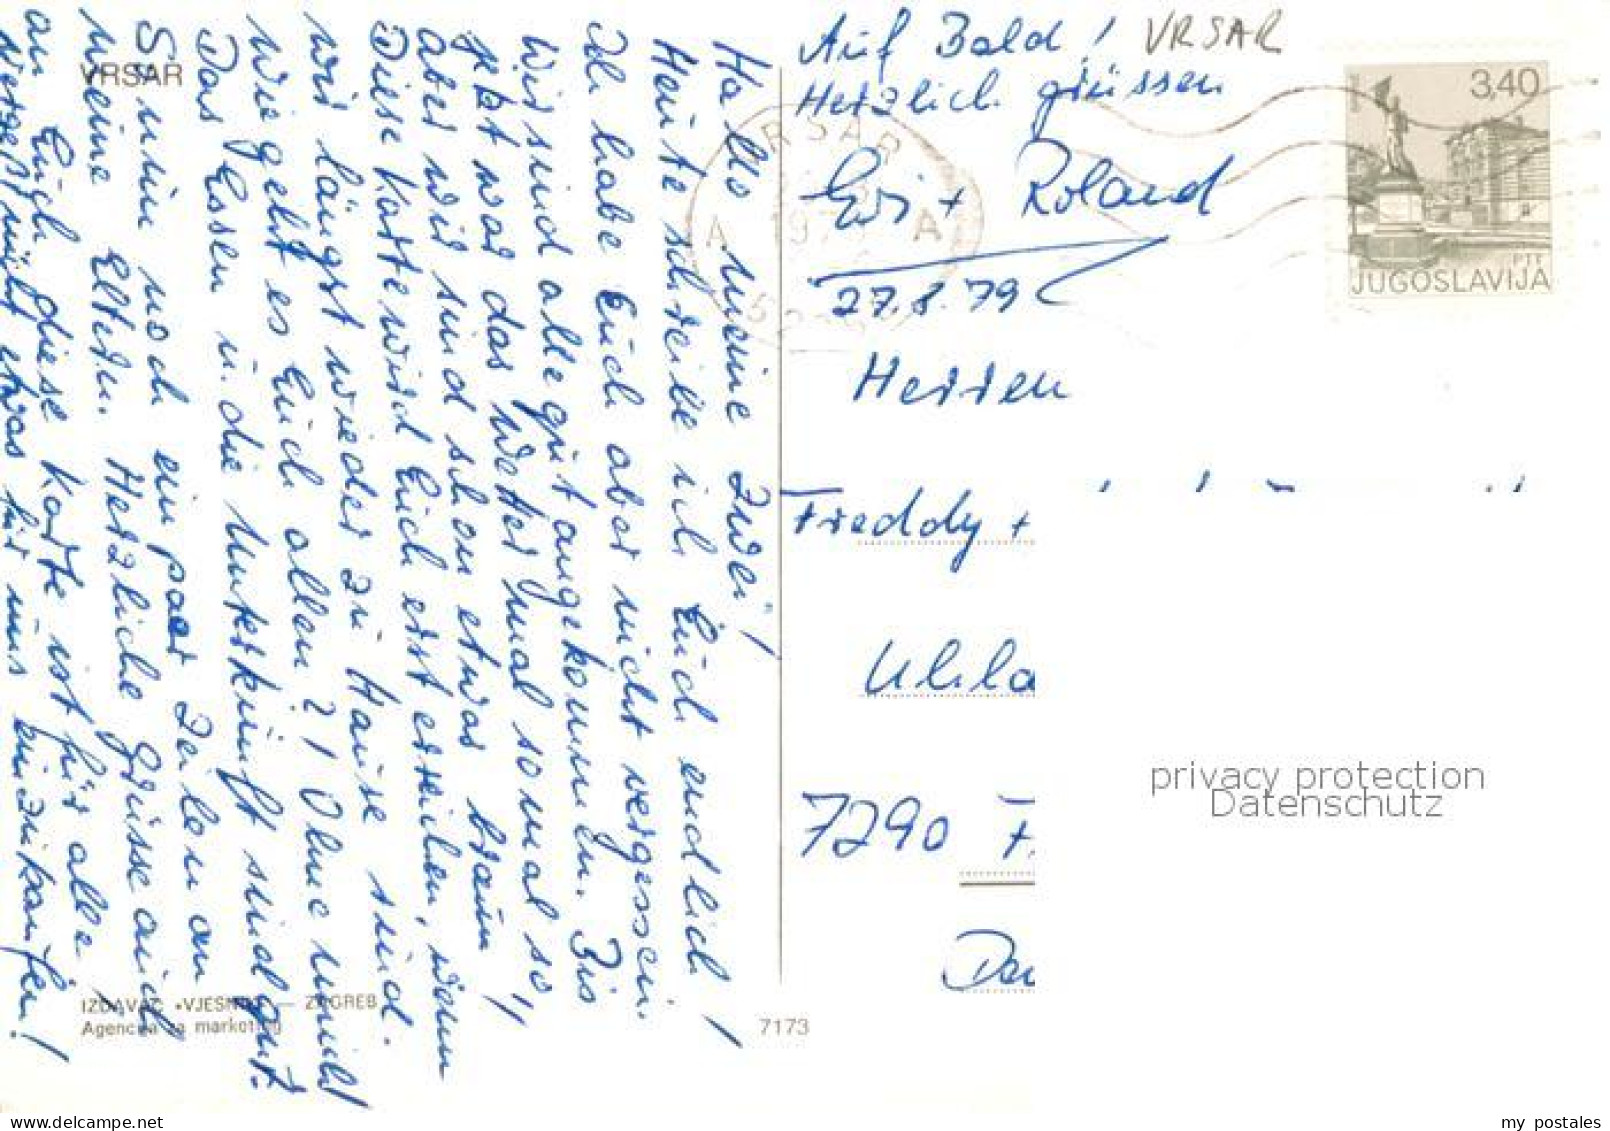 VRSAR
Hallo meine Zwei!
Heute schreibe ich Euch endlich!
Ich habe Euch aber nicht vergessen.
Wir sind alle gut angekommen. Bis
jetzt war das Wetter mal so mal so,
aber wir sind schon etwas braun!
Diese Karte wird Euch erst erreichen, wenn
wir längst wieder zu Hause sind.
Wie geht es Euch allen?! Ohne
Das Essen u. die Unterkunft sind gut.
So nun noch ein paar Zeilen an
meine Eltern. Herzliche Grüsse auch
an Euch diese Karte ist für alle!
Vergesst nicht etwas für uns einzukaufen!
IZDAVAČ „VJESNIK" — ZAGREB
Agencija za marketing
7173
Auf Bald! VRSAR
Herzlich grüssen
Evi + Roland
27.8.79
VRSAR
JUGOSLAVIJA
3,40
PTT
Herren
Freddy +
Uhla
7290 F.
Dar
privacy protection
Datenschutz
my postales